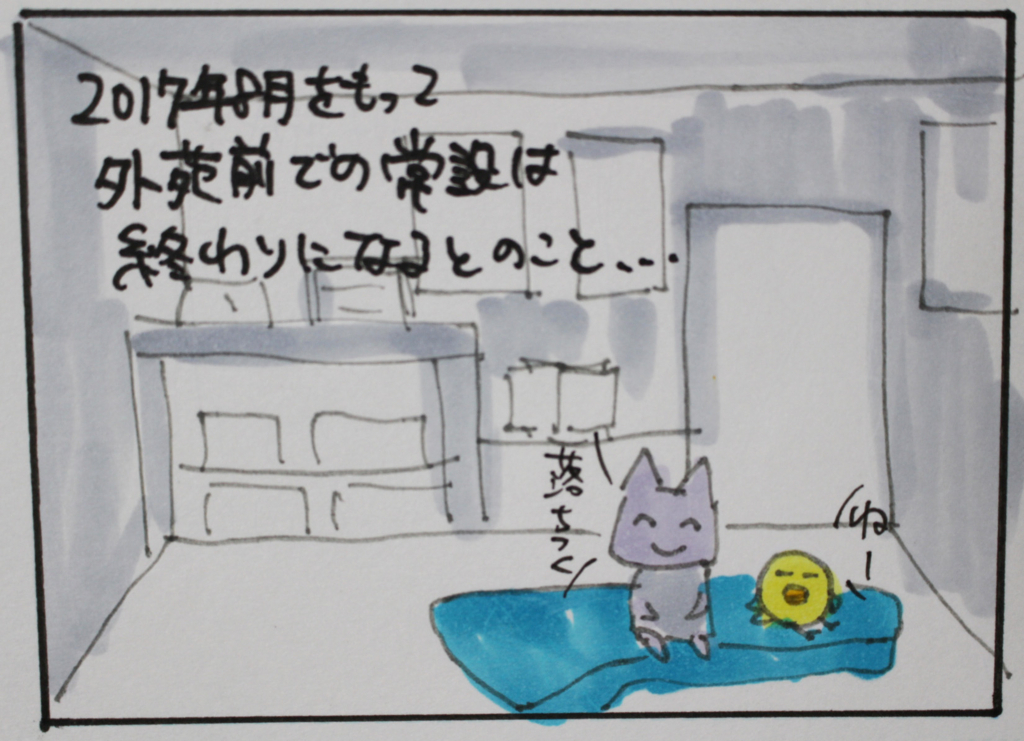 2017年8月をもって
外苑前での常設は
終わりになるとのこと、、、
落ちつく
ねー